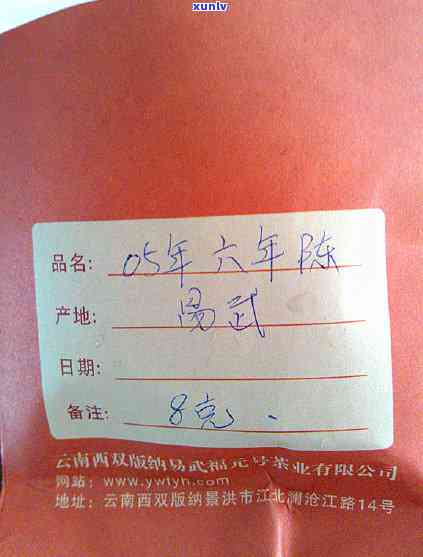 xunlv
品名: 05年六年陈
产地: 易武
日期:
备注: 8克.
云南西双版纳易武福元号茶业有限公司
网站: www.ywfyh.com
地址: 云南西双版纳景洪市江北澜沧江路14号